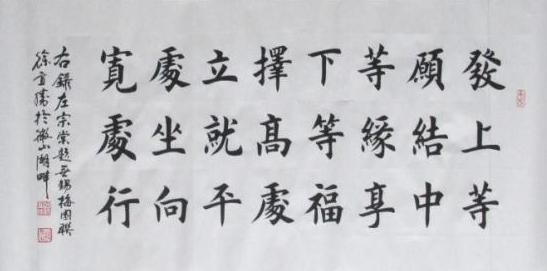 發上等
願結中
等緣享
下等福
擇高處
立就平
處坐向
寬處行
右錄左宗棠題无錫梅園聯
徐於微山湖畔